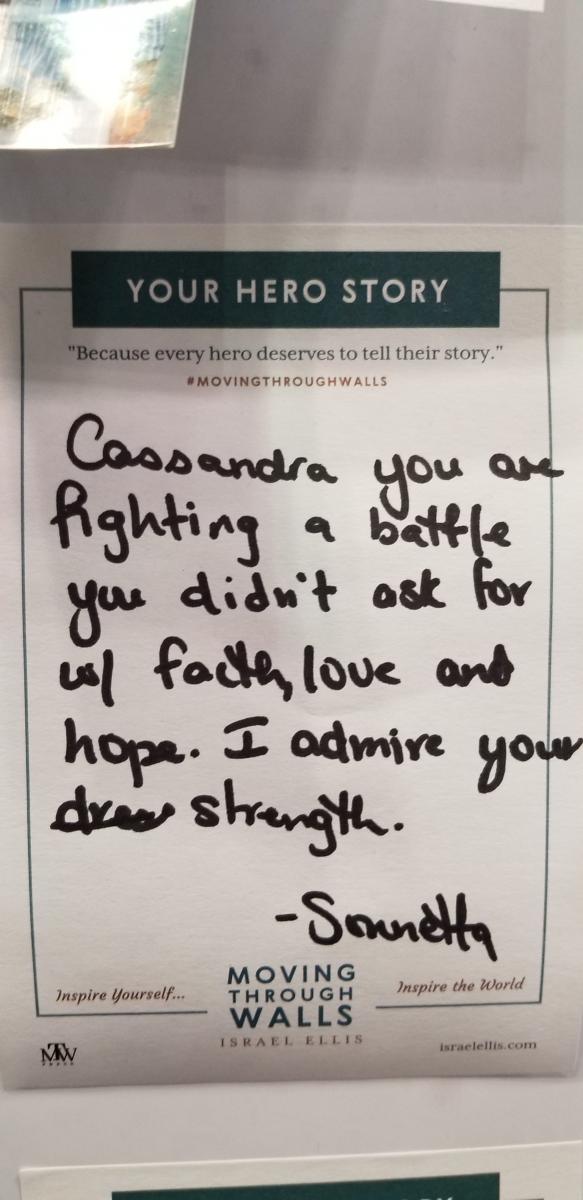 YOUR HERO STORY
"Because every hero deserves to tell their story."
#MOVINGTHROUGHWALLS
Cassandra you are
fighting a battle
you didn't ask for
w/ faith, love and
hope. I admire your
strength.
-Sonnetta
Inspire Yourself...
MOVING
THROUGH
WALLS
ISRAEL ELLIS
Inspire the World
MTW
israelellis.com